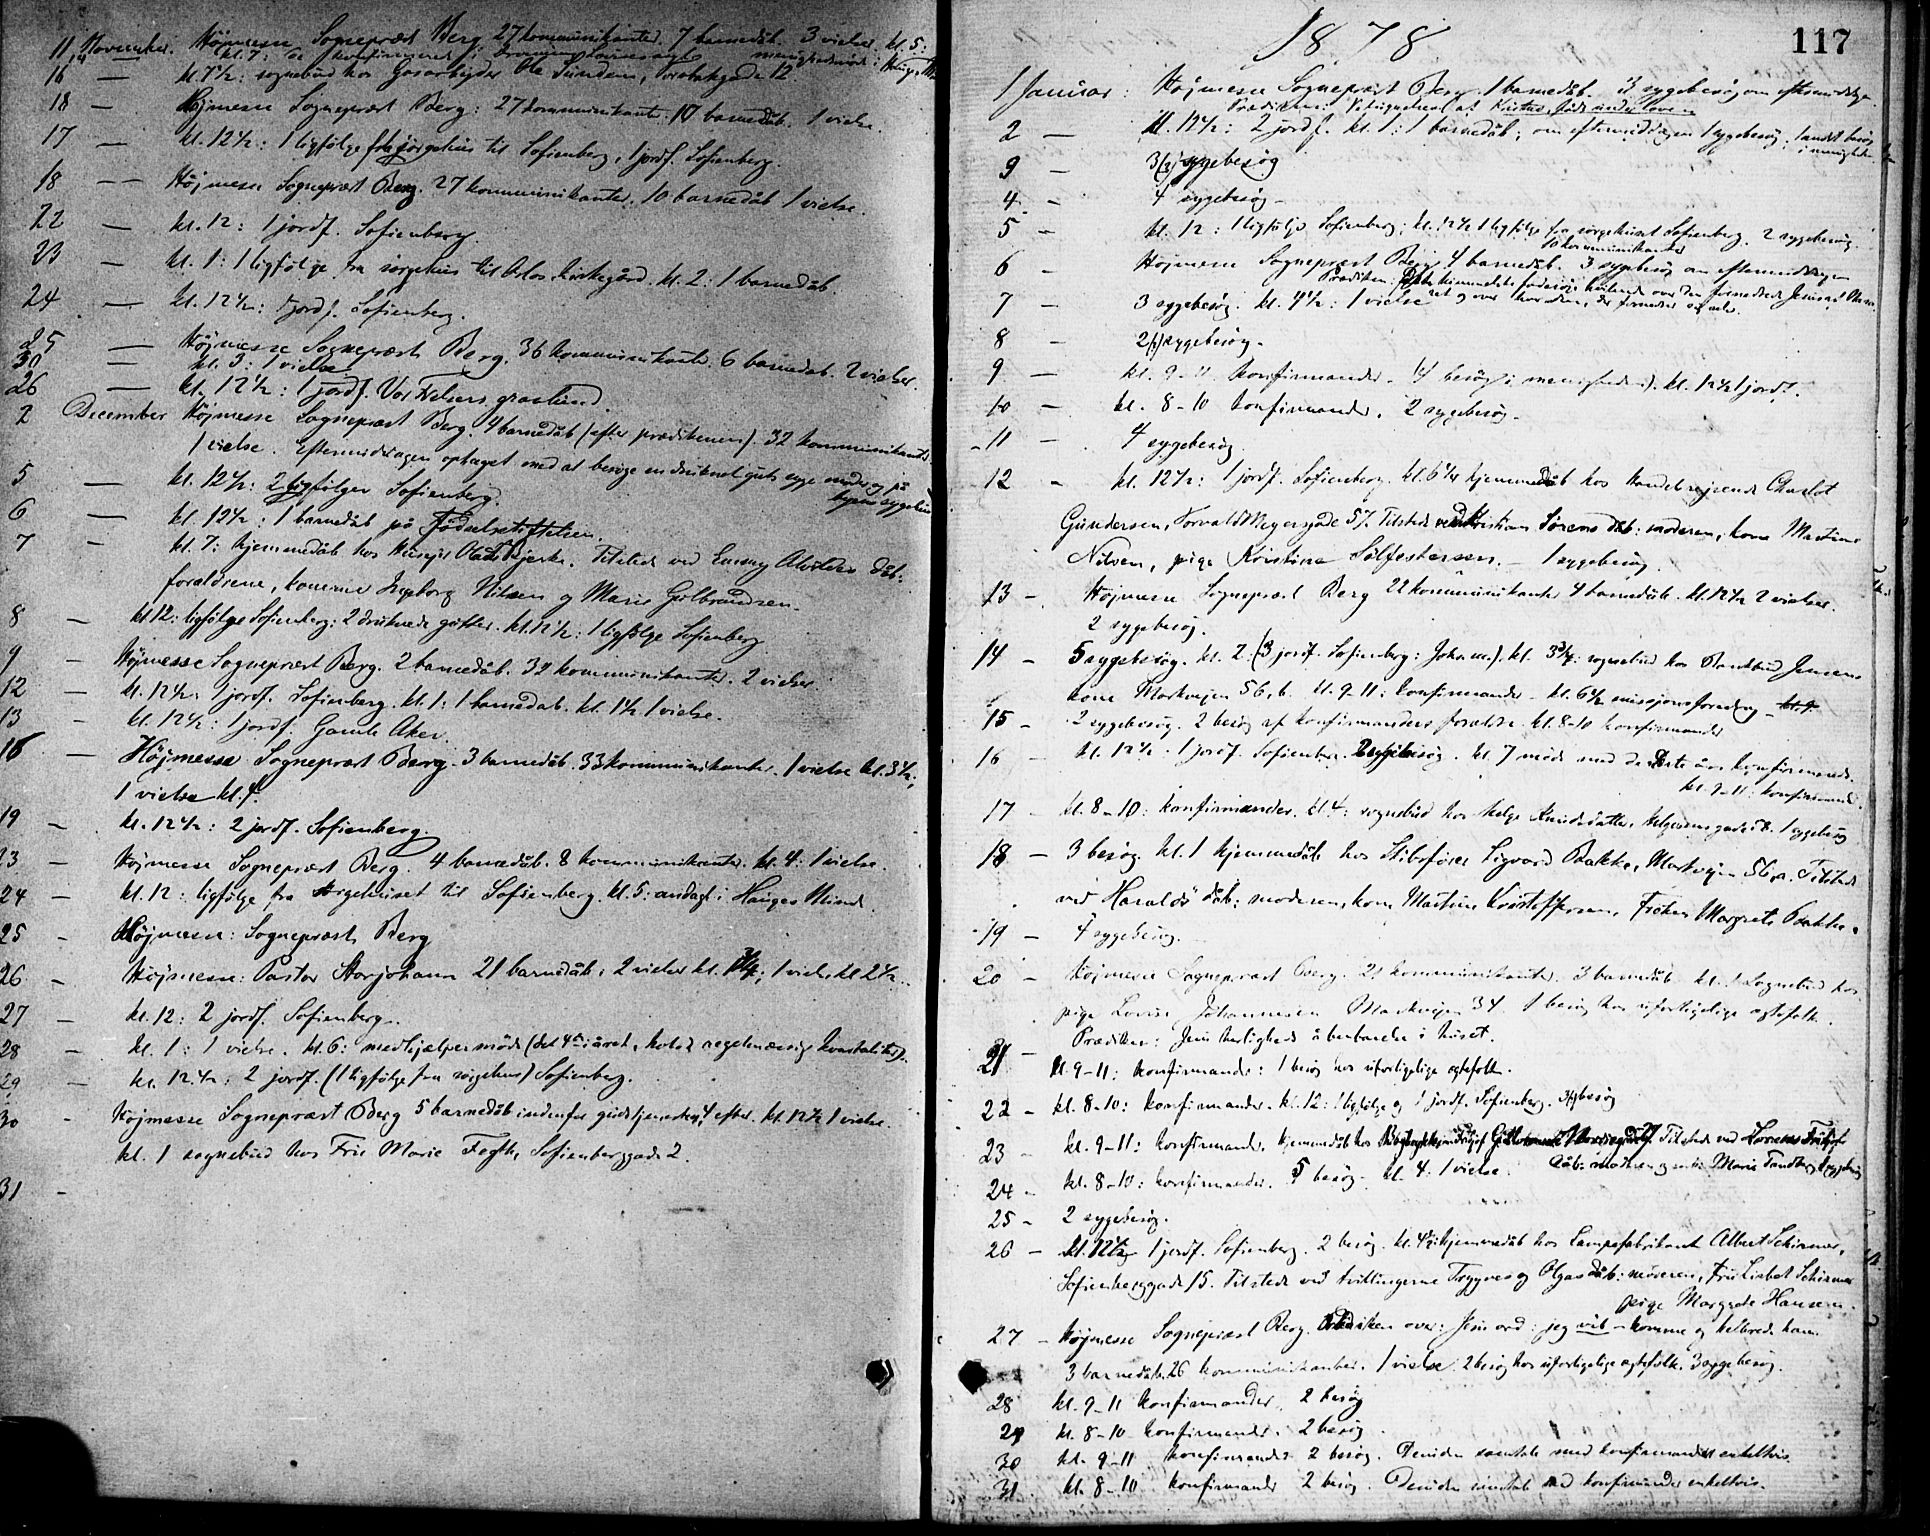 11 November. Højmesse Sogneprest Berg 27 kommunikanter. 7 barnedåb. 3 vielser. kl. 5:
14 — kl. 7:
16 — kl. 7½: sognebud hos Gasarbejder Ole Sundens, Torvbakgade 12
18 — Højmesse Sogneprest Berg: 27 kommunikanter. 10 barnedåb 1 vielse.
17 — kl. 12½: 1 ligfølge fra sørgehus til Sofienberg, 1 jordf. Sofienberg.
18 — Højmesse Sogneprest Berg. 27 kommunikanter. 10 barnedåb 1 vielse.
22 — kl. 12: 1 jordf. Sofienberg.
23 — kl. 1: 1 ligfølge fra sørgehus til Oslos kirkegård. kl. 2: 1 barnedåb.
24 — kl. 12½: 1 jordf. Sofienberg.
25 — Højmesse Sogneprest Berg. 36 kommunikanter. 6 barnedåb. 2 vielser.
30 — kl. 3: 1 vielse
26 — kl. 12½: 1 jordf. Vor Frelsers gravlund
2 December Højmesse Sogneprest Berg. 4 barnedåb (efter prædikenen). 32 kommunikanter.
1 vielse. Eftermiddagen optaget med at besøge en druknet guts syge moder og på
hjem sygebesøg
5 — kl. 12½: 2 ligfølger Sofienberg.
6 — kl. 12½: 1 barnedåb på Fødselsstiftelsen.
7 — kl. 7: hjemmedåb hos Husejer Bjerke. Tilstede ved Emmy Alvildes dåb:
forældrene, konerne Ingeborg Nilsen og Marie Gulbrandsen.
8 — kl 12: ligfølge Sofienberg: 2 druknede gutter. kl. 12½: 1 ligfølge Sofienberg
9 — Højmesse Sogneprest Berg. 2 barnedåb. 32 kommunikanter. 2 vielser.
12 — kl. 12½: 1 jordf. Sofienberg. kl. 1: 1 barnedåb. kl. 1½ 1 vielse.
13 — kl. 12½: 1 jordf. Gamle Aker.
16 — Højmesse Sogneprest Berg. 3 barnedåb. 33 kommunikanter. 1 vielse kl. 3½,
1 vielse kl. 4.
19 — kl. 12½: 2 jordf. Sofienberg.
23 — Højmesse Sogneprest Berg. 4 barnedåb. 8 kommunikanter. kl. 4: 1 vielse.
24 — kl. 12: ligfølge fra sørgehuset til Sofienberg. kl. 5: andagt i Hauges Minde
25 — Højmesse: Sogneprest Berg
26 — Højmesse: Pastor Storjohann 21 barnedåb: 2 vielser kl. 1¾; 1 vielse kl 2½.
27 — kl. 12: 2 jordf. Sofienberg.
28 — kl. 1: 1 vielse. kl. 6: medhjælpermøde (det 4de i året, holdt regelmæssig kvartaliter).
29 — kl. 12½: 2 jordf. (1 ligfølge fra sørgehus) Sofienberg.
30 - Højmesse Sogneprest Berg 5 barnedåb indenfor gudstjenesten, 4 efter. kl. 12½ 1 vielse.
kl. 1 sognebud hos Fru Marie Fegth, Sofienberggade 2.
31 -
1878
117
1 Januar: Højmesse Sogneprest Berg. 1 barnedåb. 3 sygebesøg om eftermiddagen
Prædiken: Velsignelsen at Kristus født under loven
2 — kl. 12½: 2 jordf. kl. 1: 1 barnedåb; om eftermiddagen 1 sygebesøg, 1 andet besøg
i menigheden
3 — 3 sygebesøg
4 - 4 sygebesøg -
5 - kl. 12: 1 ligfølge Sofienberg; kl. 12½ 1 ligfølge fra sørgehuset Sofienberg. 2 sygebesøg.
10 kommunikanter
6 - Højmesse Sogneprest Berg 4 barnedåb. 3 sygebesøg om eftermiddagen
7 - 3 sygebesøg. kl. 4½: 1 vielse
8 - 2 sygebesøg.
9 — kl. 9-11 konfirmander. 4 besøg i menigheden). kl. 12½ 1 jordf.
10 — kl. 8-10 konfirmander. 2 sygebesøg.
11 — 4 sygebesøg
12 - kl. 12½: 1 jordf. Sofienberg. kl. 6¼ hjemmedåb hos Handelsrejsende Charlot
Gundersen, Torvald Meyersgade 57. Tilstede ved Kristian Sørens dåb: moderen, kone Martine
Nilsen, pige Kristine Sølfestersen. — 1 sygebesøg.
13 - Højmesse Sogneprest Berg 22 kommunikanter 4 barnedåb. kl. 12½ 2 vielser.
2 sygebesøg.
14 - 5 sygebesøg. kl. 2. (3 jordf. Sofienberg: Joh. ). kl. 3¾: sognebud hos Jensens
kone Markvejen 56, b. kl. 9-11: konfirmander - kl. 6½ missjonsforedrag -
15 - 2 sygebesøg. 2 besøg af konfirmanders forældre. kl. 8-10 konfirmander
16 - kl. 12½ 1 jordf. Sofienberg. 2 sygebesøg. kl. 7 møde med de sidste års konfirmerede.
kl. 9-11: konfirmand.
17 - kl. 8-10: konfirmander. kl. 4: sognebud hos Helge Knudsdatter, Helgesensgade 58. 1 sygebesøg
18 - 3 besøg. kl. 1 hjemmedåb hos Skibsfører Sigvard Bakke, Markvejen 56, a. Tilstede
ved Haralds dåb: moderen, kone Martine Kristoffersen, Frøken Margrete Bakke.
19 - 4 sygebesøg.
20 - Højmesse Sogneprest Berg. 21 kommunikanter. 3 barnedåb. kl. 1 sognebud hos
pige Lovise Johannesen Markvejen 34. 1 besøg hos uforligelige ægtefolk.
Prædiken: Jesu herligheds åbenbarelse i huset.
21 - kl. 9-11: konfirmander: 1 besøg hos uforligelige ægtefolk.
22 - kl. 8-10: konfirmander. kl. 12: 1 ligfølge og 1 jordf. Sofienberg. 3 besøg
23 - kl. 9-11: konfirmander. hjemmedåb hos Tilstede ved Lorentz Fritjof
dåb: moderen og enke Marie Tandberg, 1 sygebesøg
24 - kl. 8-10: konfirmander. 5 besøg. kl. 4: 1 vielse.
25 - 2 sygebesøg.
26 - kl. 12½ 1 jordf. Sofienberg. 2 besøg. kl. 4½: hjemmedåb hos Lampefabrikant Albert Schirmer,
Sofienberggade 15. Tilstede ved tvillingerne Trygves og Olgas dåb: moderen, Fru Lisbet Schirmer
pige Margrete Hansen.
27 - Højmesse Sogneprest Berg. Prædiken over: Jesu ord: jeg vil komme og helbrede ham
3 barnedåb. 26 kommunikanter. 1 vielse: 2 besøg hos uforligelige ægtefolk. 3 sygebesøg.
28 kl. 9-11 konfirmander. 2 besøg
29 kl. 8-10 konfirmander. 2 besøg
30 kl. 9-11 konfirmander 2 besøg. Desuden samtale med konfirmander enkeltvis
31. kl. 8-10 konfirmander 2 besøg. Desuden samtale med konfirmander enkeltvis.